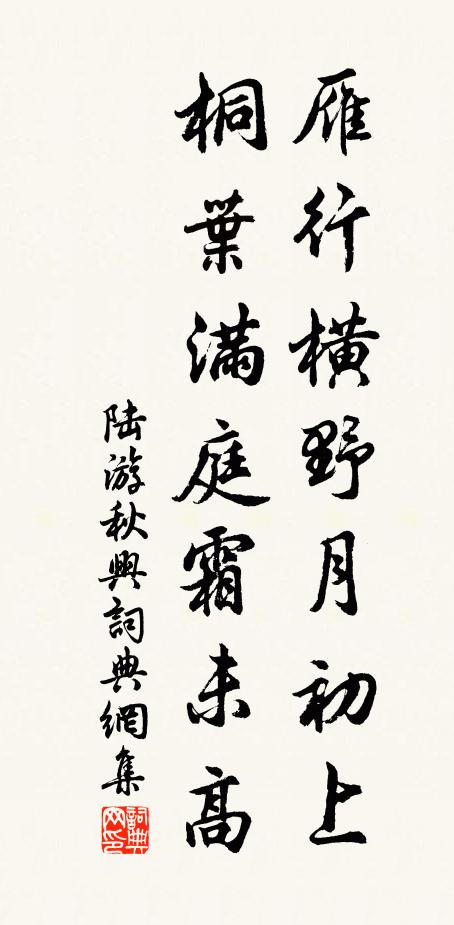 雁行橫野月初上
桐葉滿庭霜未高
陸游秋興詞典網集
詞典
网印